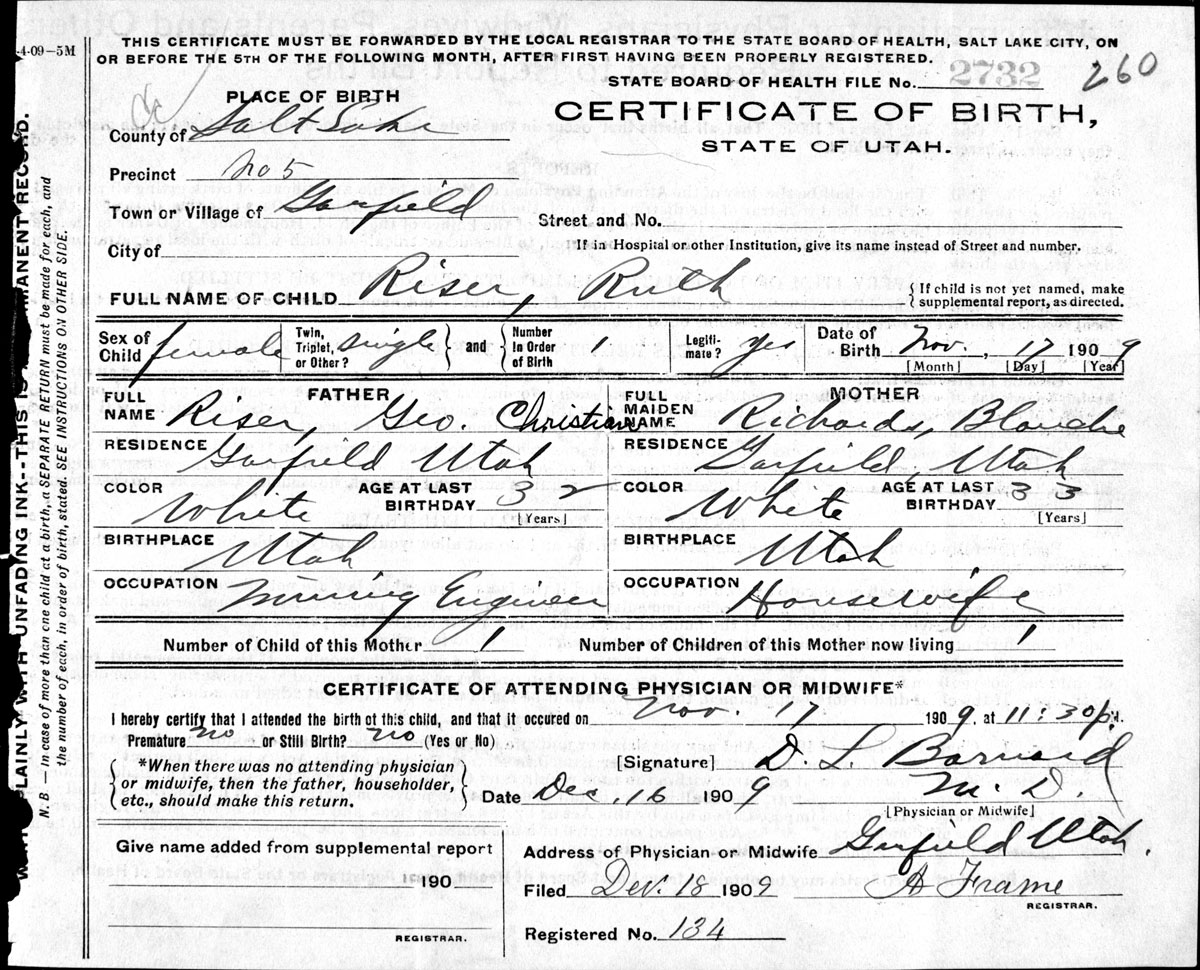 4-09-5M
THIS CERTIFICATE MUST BE FORWARDED BY THE LOCAL REGISTRAR TO THE STATE BOARD OF HEALTH, SALT LAKE CITY, ON
OR BEFORE THE 5TH OF THE FOLLOWING MONTH, AFTER FIRST HAVING BEEN PROPERLY REGISTERED.
STATE BOARD OF HEALTH FILE No. 2732 260
PLACE OF BIRTH
CERTIFICATE OF BIRTH,
STATE OF UTAH.
County of Salt Lake
Precinct No 5
Town or Village of Garfield
Street and No.
City of
If in Hospital or other Institution, give its name instead of Street and number.
FULL NAME OF CHILD Riser, Ruth
{ If child is not yet named, make
supplemental report, as directed.
Sex of Child female Twin, Triplet, or Other? single and Number In Order of Birth 1 Legiti-mate? yes Date of Birth Nov. , 17 1909
[Month] [Day] [Year]
FATHER
FULL NAME Riser, Geo. Christian
RESIDENCE Garfield Utah
COLOR White AGE AT LAST BIRTHDAY 32
[Years]
BIRTHPLACE Utah
OCCUPATION Mining Engineer
MOTHER
FULL MAIDEN NAME Richards, Blanche
RESIDENCE Garfield, Utah
COLOR White AGE AT LAST BIRTHDAY 33
[Years]
BIRTHPLACE Utah
OCCUPATION Housewife
Number of Child of this Mother 1 Number of Children of this Mother now living 1
CERTIFICATE OF ATTENDING PHYSICIAN OR MIDWIFE*
I hereby certify that I attended the birth of this child, and that it occured on Nov. 17 1909, at 11:30 p.
Premature no or Still Birth? no (Yes or No)
*When there was no attending physician
or midwife, then the father, householder,
etc., should make this return.
[Signature] D. L. Barnard
M. D.
Date Dec. 16 1909
[Physician or Midwife]
Give name added from supplemental report
190
REGISTRAR.
Address of Physician or Midwife Garfield Utah.
Filed Dec. 18 1909 A Frame
REGISTRAR.
Registered No. 134
PLAINLY WITH UNFADING INK--THIS IS
MANENT RECORD.
N. B. — In case of more than one child at a birth, a SEPARATE RETURN must be made for each, and
the number of each, in order of birth, stated. SEE INSTRUCTIONS ON OTHER SIDE.